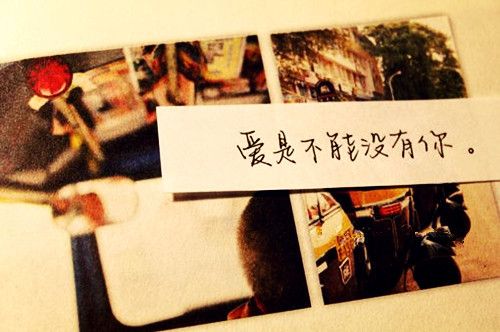 爱是不能没有你。